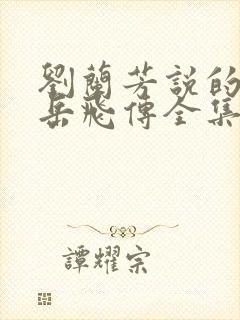 劉蘭芳説的
岳飛傳全集
譚耀宗